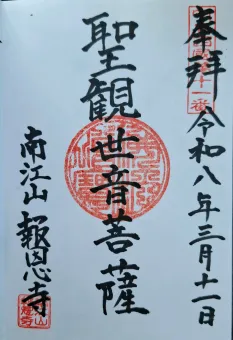 奉拝 令和八年三月十一日
聖観世音菩薩
南江山 報恩寺